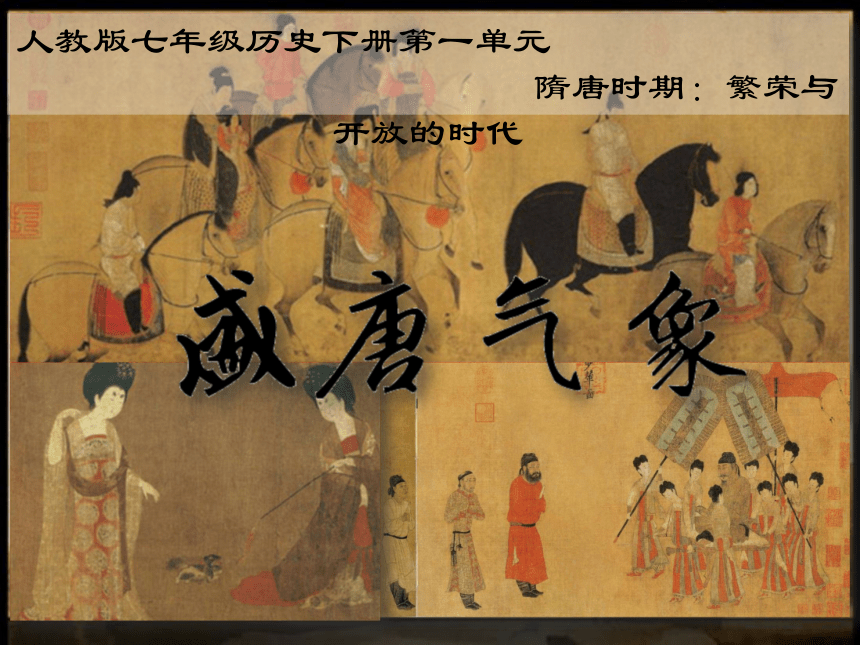 人教版七年级历史下册第一单元
隋唐时期：繁荣与
开放的时代
盛唐气象